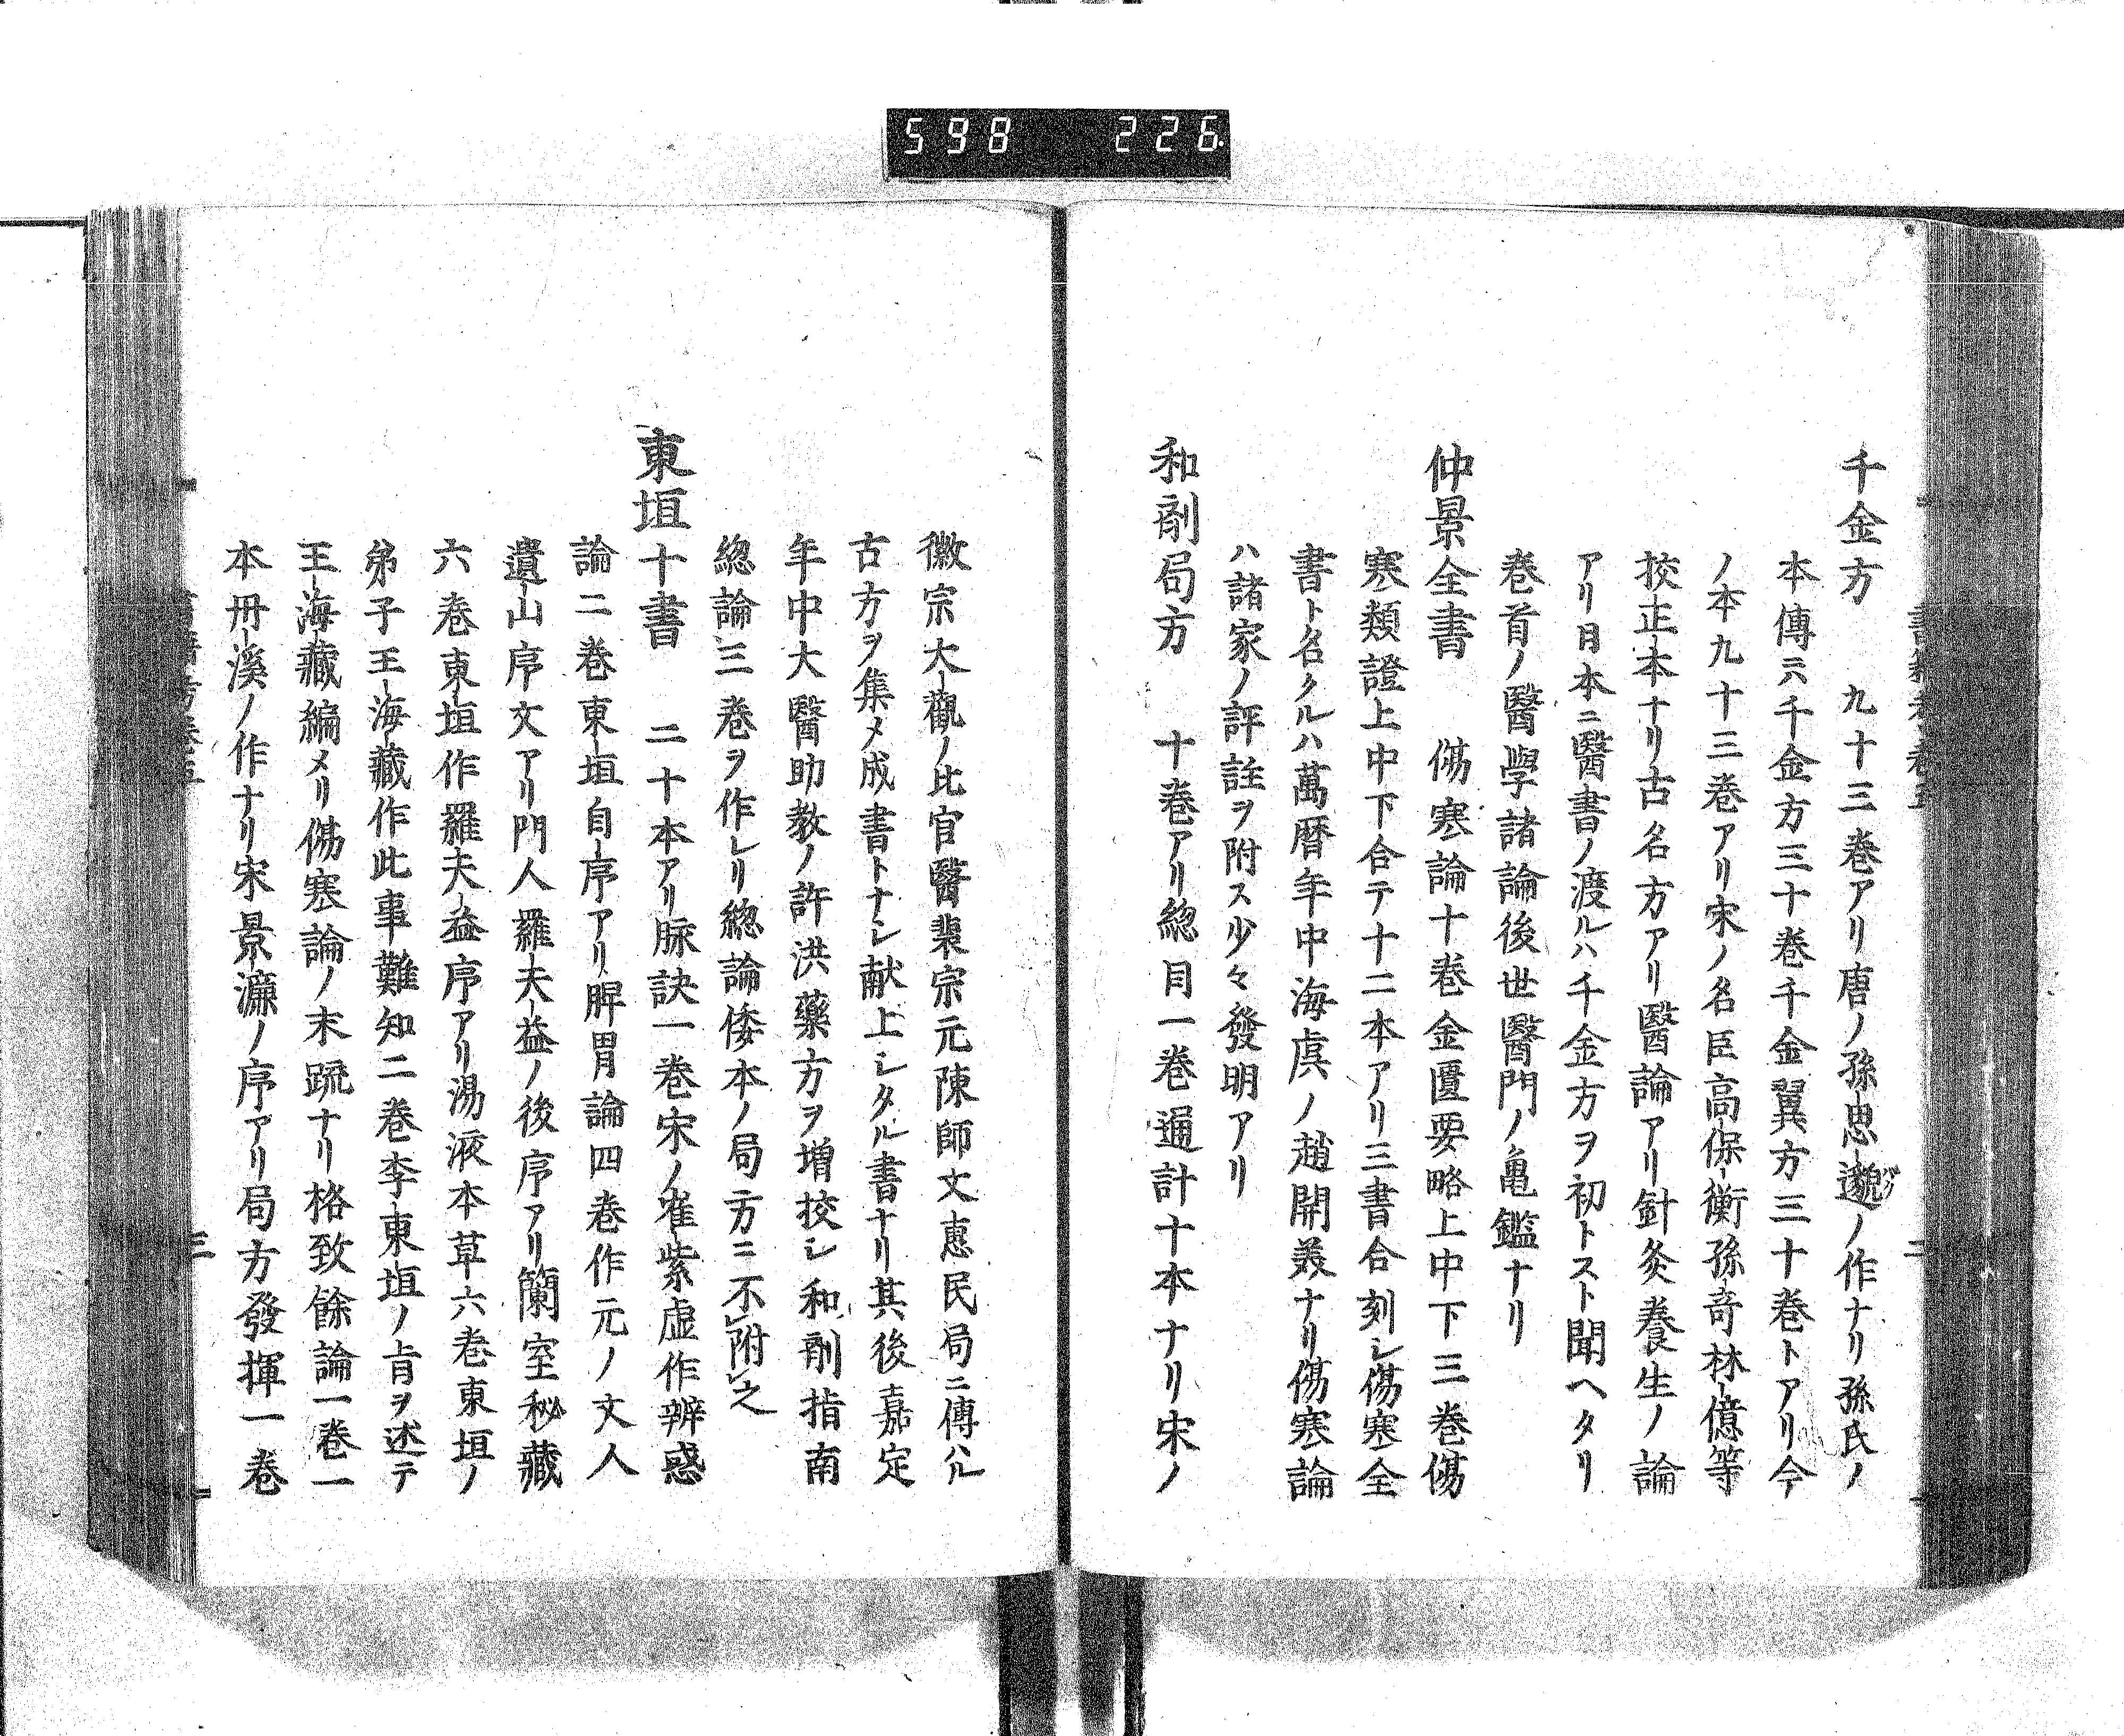 598 226
千金方 九十三巻アリ唐ノ孫思邈ノ作ナリ孫氏ノ
本傳ニ六千金方三十巻千金翼方三十巻トアリ今
ノ本九十三巻アリ宋ノ名臣高保衡孫竒林億等
挍正本ナリ古名方アリ醫論アリ針灸養生ノ論
アリ日本ニ醫書ノ渡ルハ千金方ヲ初トスト聞ヘタリ
巻首ノ醫學諸論後世醫門ノ亀鑑ナリ
仲景全書 傷寒論十巻金匱要略上中下三巻傷
寒類證上中下合テ十二本アリ三書合刻シ傷寒全
書ト名クルハ萬暦年中海虞ノ趙開美ナリ傷寒論
ハ諸家ノ評註ヲ附ス少々發明アリ
和剤局方 十巻アリ緫目一巻通計十本ナリ宋ノ
徽宗大觀ノ比官醫裴宗元陳師文惠民局ニ傳ハル
古方ヲ集メ成書トナシ献上シタル書ナリ其後嘉定
年中大醫助教ノ許洪藥方ヲ増挍シ和剤指南
緫論三巻ヲ作レリ緫論倭本ノ局方ニ不レ附レ之
東垣十書 二十本アリ脉訣一巻宋ノ崔紫虚作辨惑
論二巻東垣自序アリ脾胃論四巻作元ノ文人
遺山序文アリ門人羅天益ノ後序アリ蘭室秘藏
六巻東垣作羅夫益序アリ湯液本草六巻東垣ノ
弟子王海藏作此事難知二巻李東垣ノ旨ヲ述テ
王海藏編メリ傷寒論ノ末䟽ナリ格致餘論一巻一
本丹溪ノ作ナリ宋景濂ノ序アリ局方發揮一巻
三